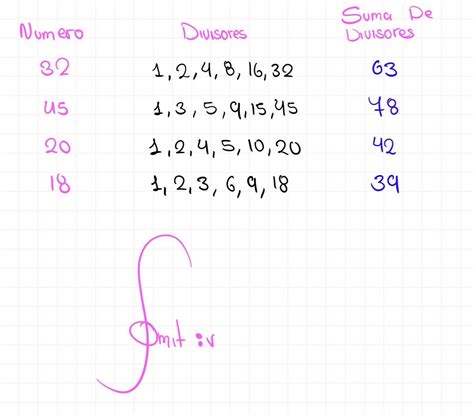 Numero Divisores Suma De Divisores
32 1, 2, 4, 8, 16, 32 63
45 1, 3, 5, 9, 15, 45 78
20 1, 2, 4, 5, 10, 20 42
18 1, 2, 3, 6, 9, 18 39
mit :v